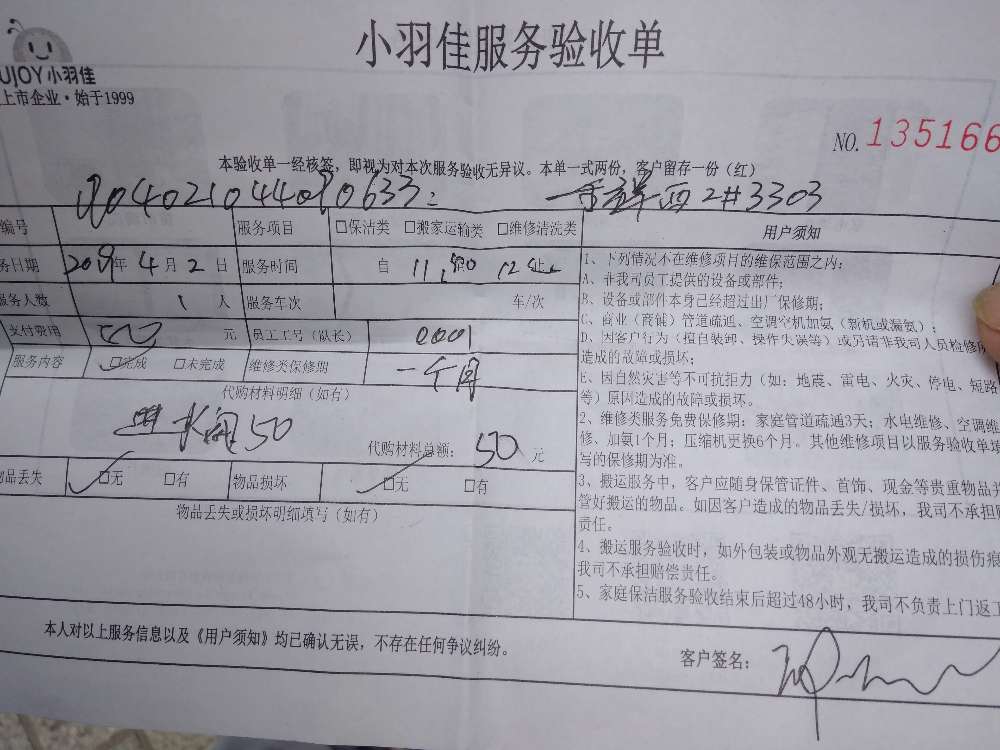 小羽佳服务验收单
UJOY小羽佳
上市企业·始于1999
NO.135166
本验收单一经核签，即视为对本次服务验收无异议。本单一式两份，客户留存一份（红）
西2#3303
编号 服务项目 □保洁类 □搬家运输类 □维修清洗类
务日期 年4月2日 服务时间 自 11 12 止
服务人数 1人 服务车次 车/次
支付费用 元 员工工号（队长） 0001
服务内容 □完成 □未完成 维修类保修期 一个月
代购材料明细（如有）
进水阀50
代购材料总额： 50 元
物品丢失 □无 □有 物品损坏 □无 □有
物品丢失或损坏明细填写（如有）
用户须知
1、下列情况不在维修项目的维保范围之内：
A、非我司员工提供的设备或部件；
B、设备或部件本身已经超过出厂保修期；
C、商业（商铺）管道疏通、空调空机加氨（新机或漏氨）；
D、因客户行为（擅自装卸、操作失误等）或另请非我司人员检修所
造成的故障或损坏；
E、因自然灾害等不可抗拒力（如：地震、雷电、火灾、停电、短路
等）原因造成的故障或损坏。
2、维修类服务免费保修期：家庭管道疏通3天；水电维修、空调维
修、加氨1个月；压缩机更换6个月。其他维修项目以服务验收单填
写的保修期为准。
3、搬运服务中，客户应随身保管证件、首饰、现金等贵重物品并
管好搬运的物品。如因客户造成的物品丢失/损坏，我司不承担赔
责任。
4、搬运服务验收时，如外包装或物品外观无搬运造成的损伤痕
我司不承担赔偿责任。
5、家庭保洁服务验收结束后超过48小时，我司不负责上门返工
本人对以上服务信息以及《用户须知》均已确认无误，不存在任何争议纠纷。
客户签名：